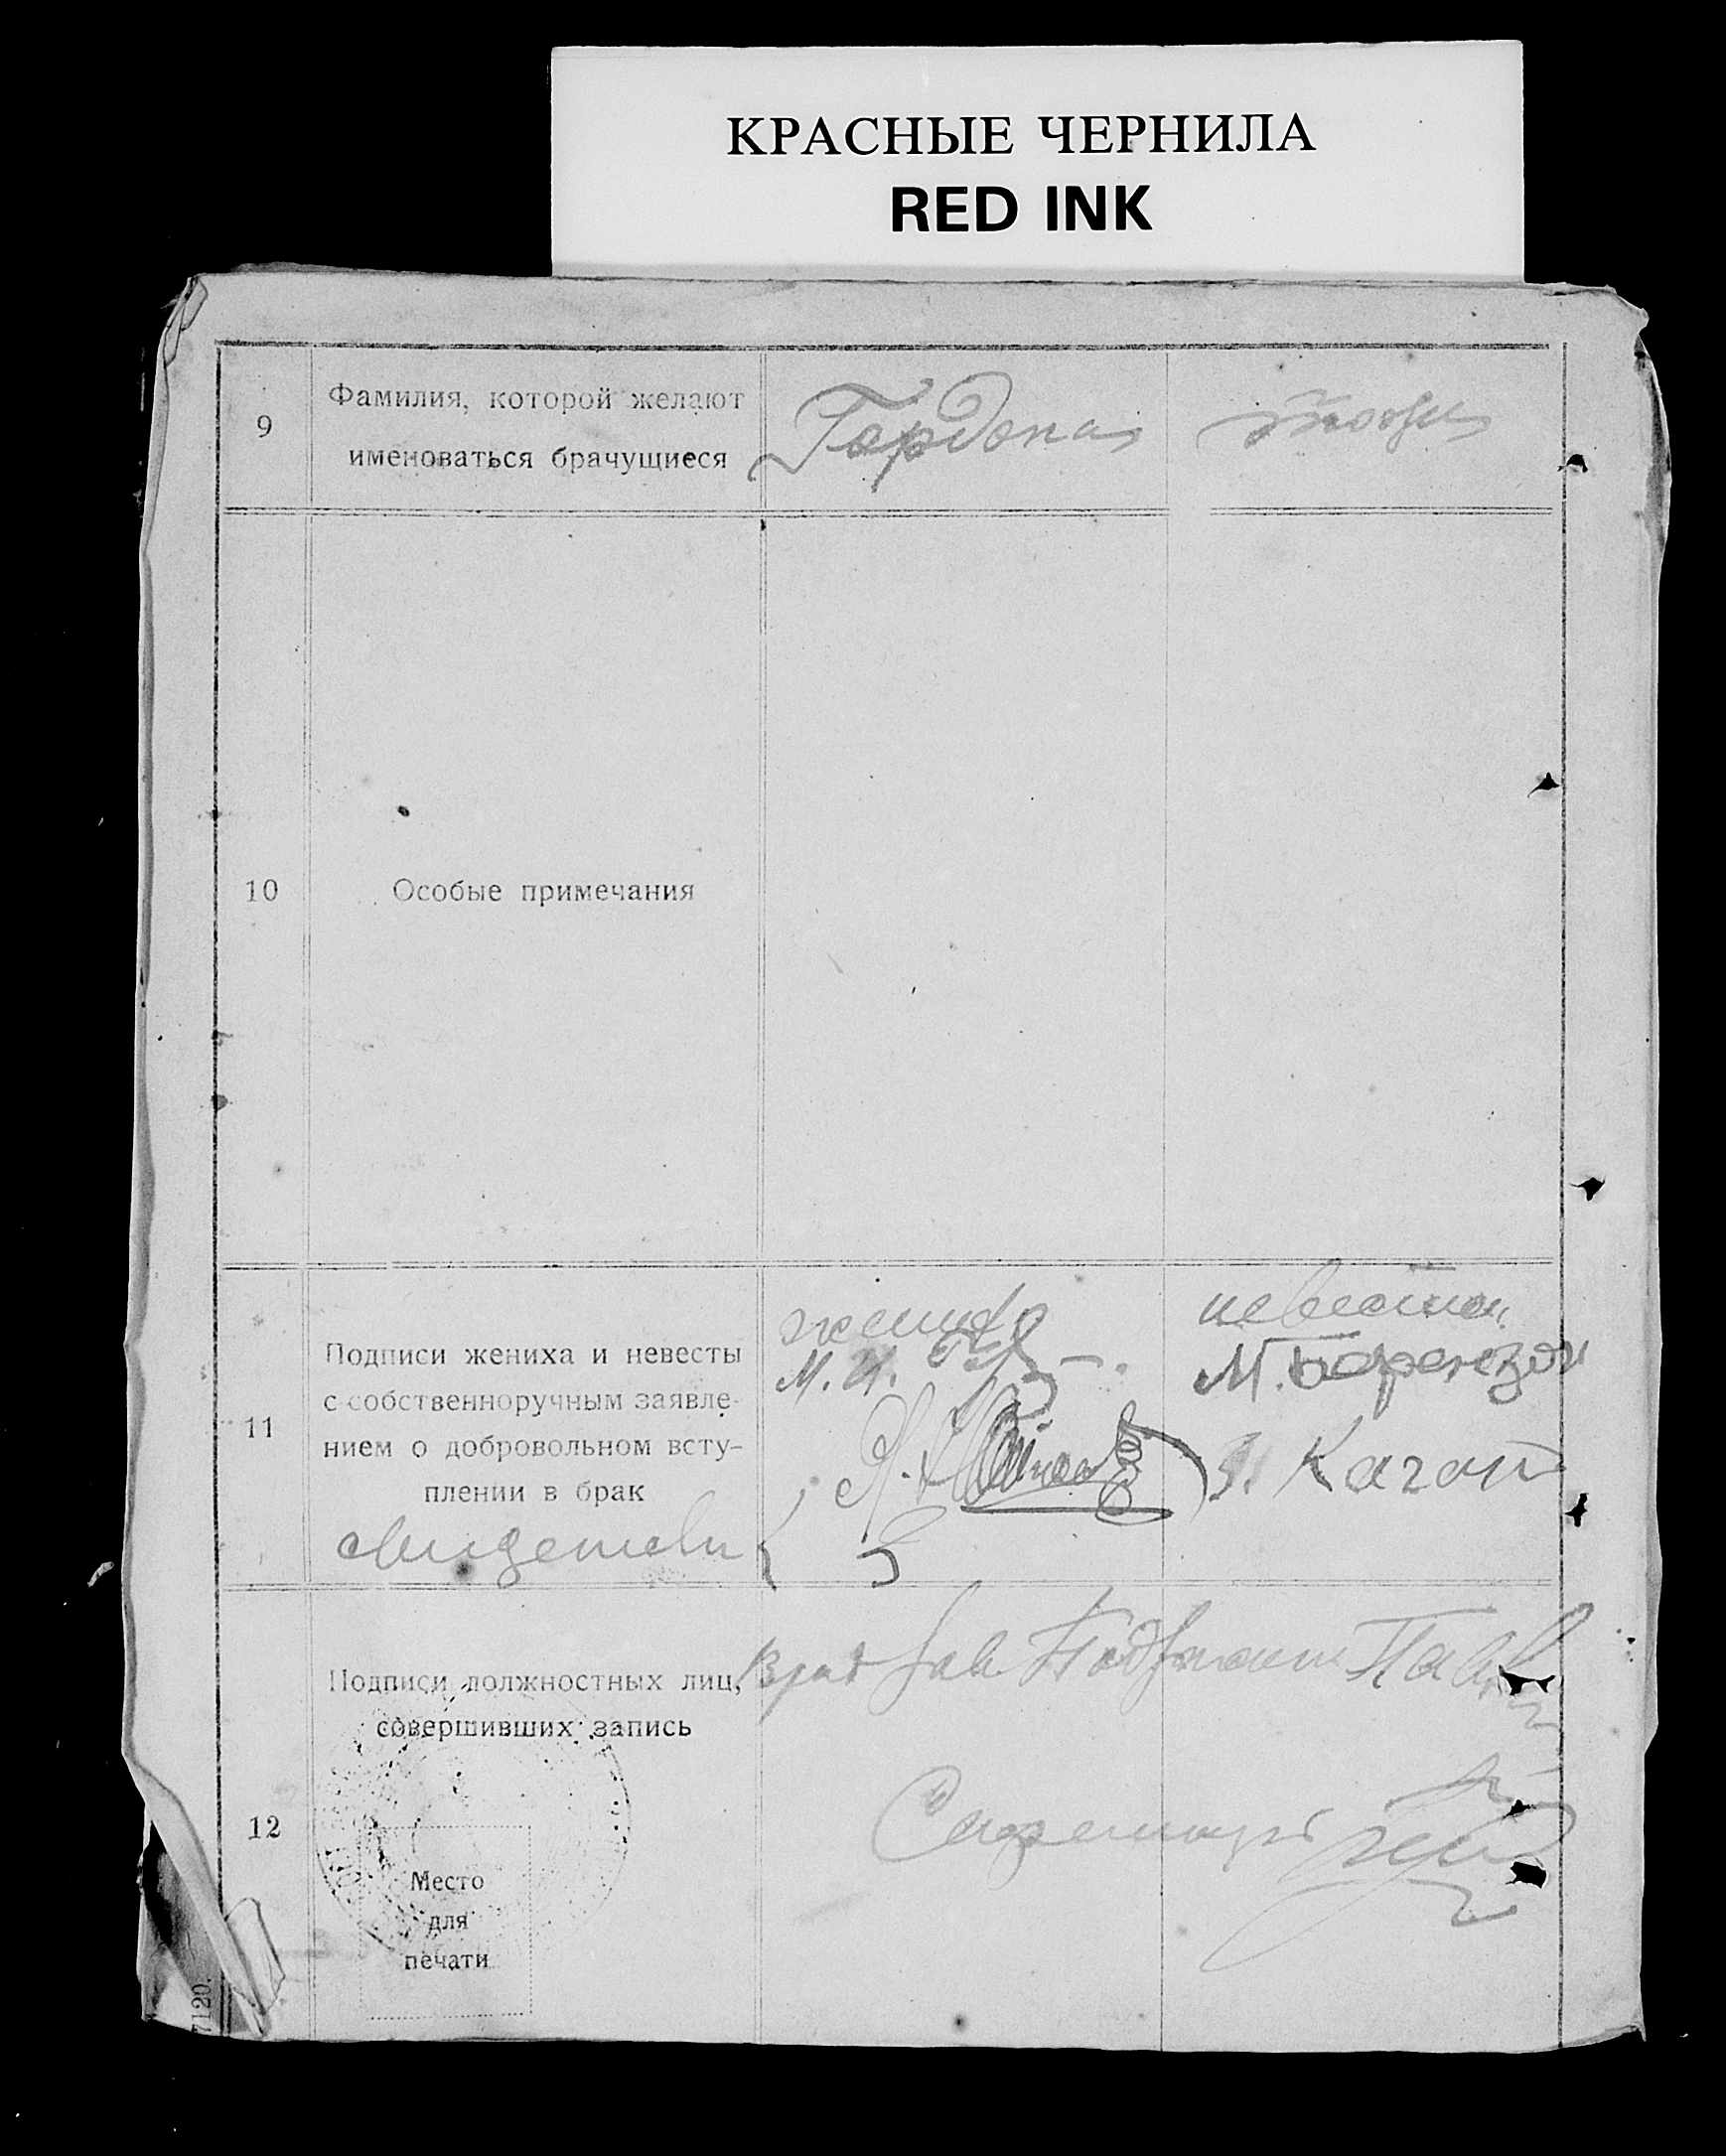 КРАСНЫЕ ЧЕРНИЛА
RED INK
9
Фамилия, которой желают
именоваться брачущиеся
Гордона
10
Особые примечания
11
Подписи жениха и невесты
с собственноручным заявле-
нием о добровольном всту-
плении в брак
свидетели
жених
М. И.
невеста
М. Баренгзон
Каган
12
Подписи должностных лиц,
совершивших запись
Место
для
печати
Врид Зав.
Секретарь
7120.